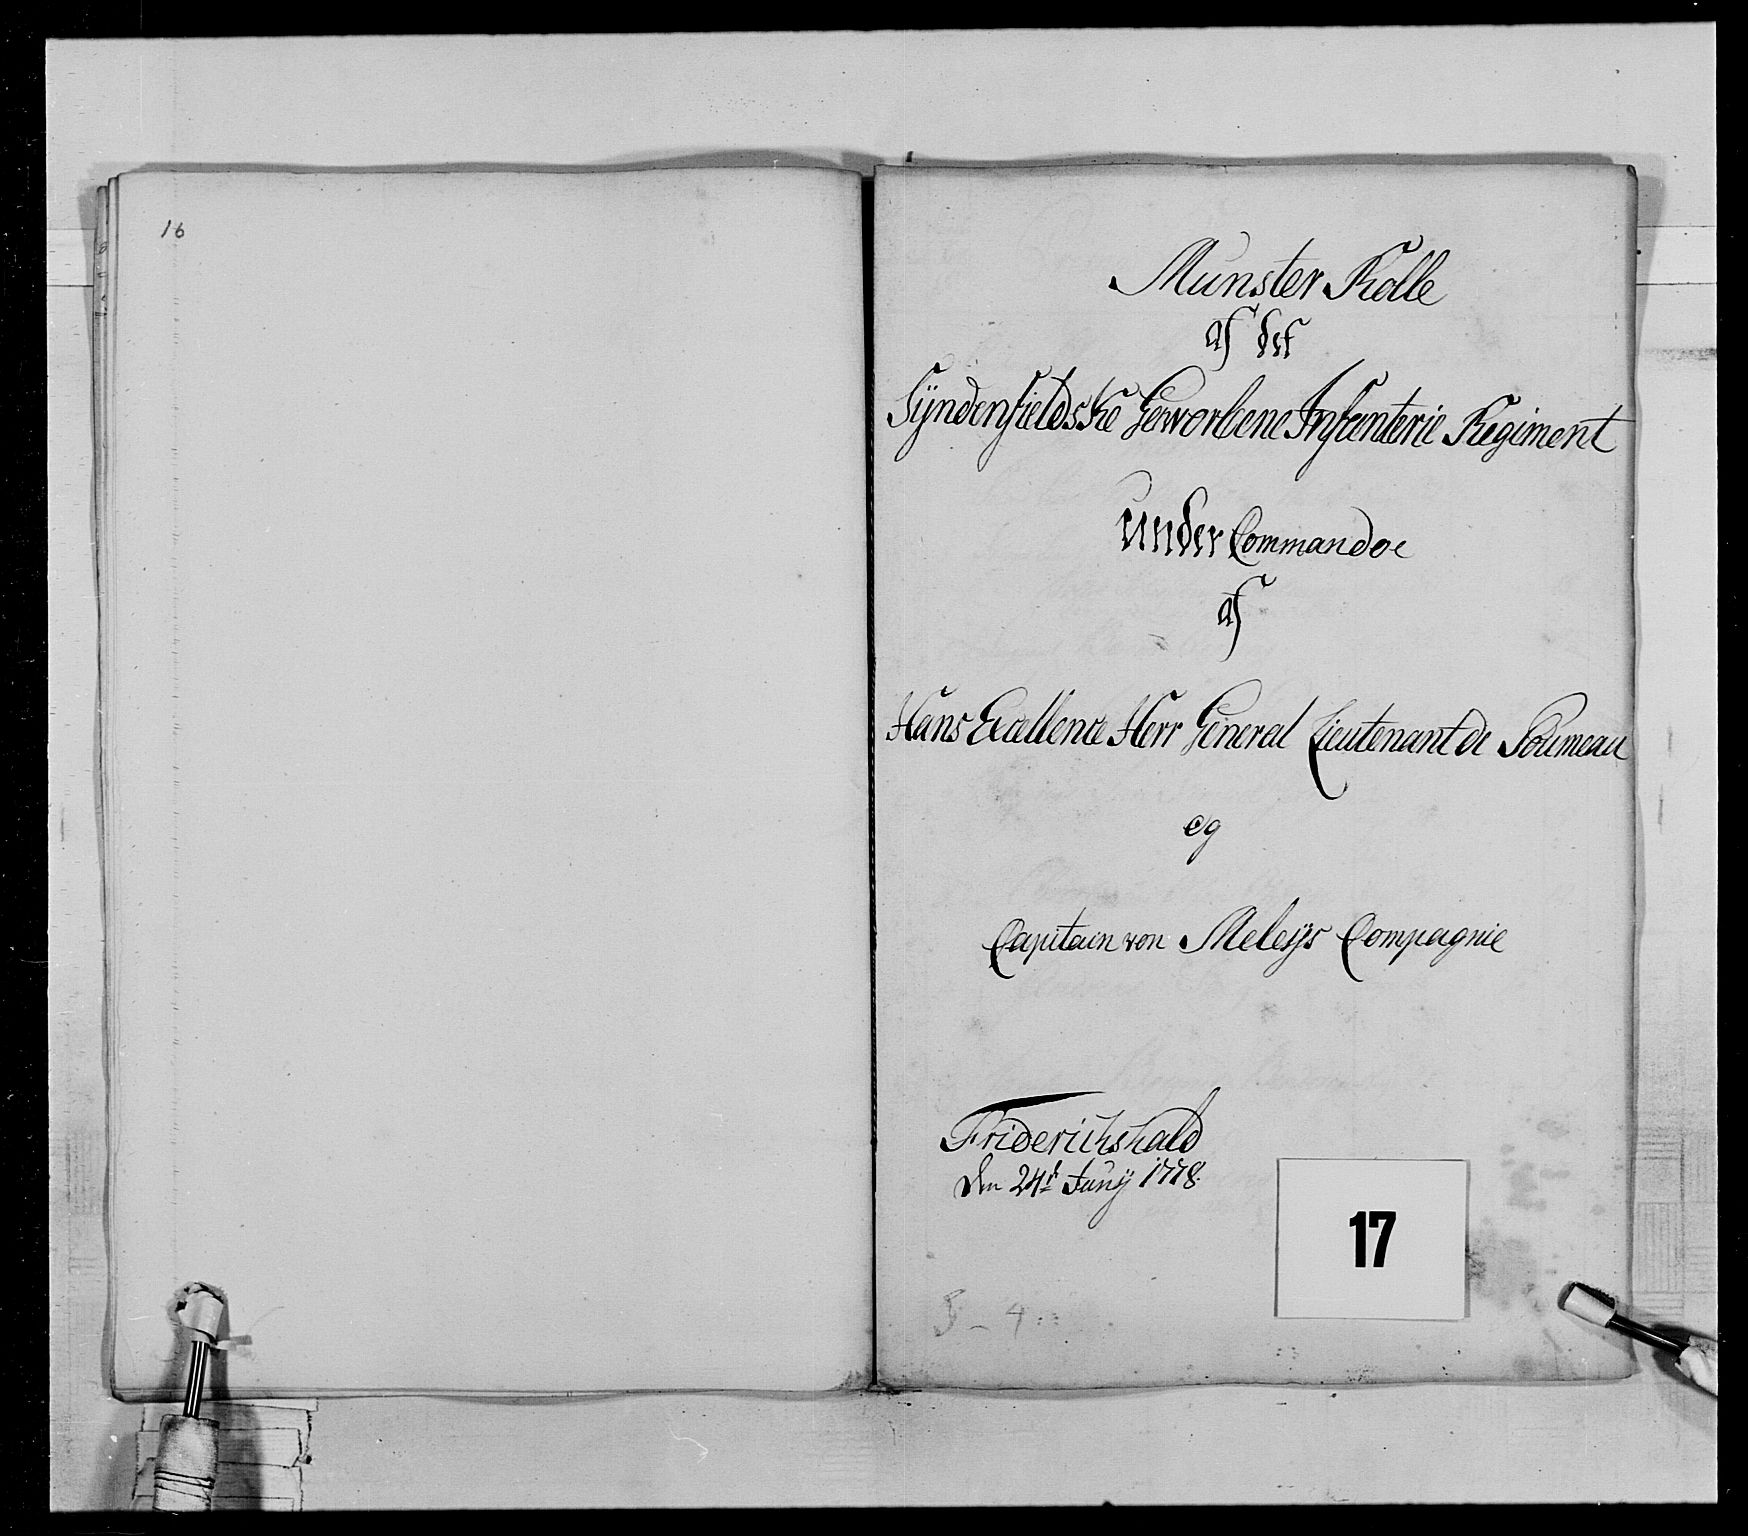 16
Munster Rolle
af det
Syndenfieldske Geworbene Infanterie Regiment
Under Commandoe
af
Hans Excellence Herr General Lieutenant de Soumeau
og
Capitain von Meleÿs Compagnie
Friderichshald
den 24de Junÿ 1778.
17